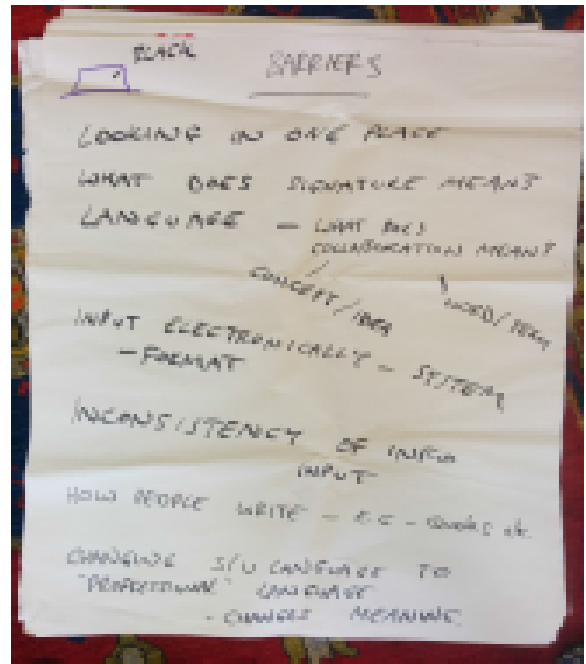 BLACK
BARRIERS
LOOKING IN ONE PLACE
WHAT DOES SIGNATURE MEAN?
LANGUAGE - WHAT DOES
COLLABORATION MEAN?
CONCEPT/IDEA
WORD/TERM
INPUT ELECTRONICALLY - SYSTEM
- FORMAT
INCONSISTENCY OF INFO
INPUT
HOW PEOPLE WRITE - E.G - QUOTES etc
CHANGING S/U LANGUAGE TO
"PROFESSIONAL" LANGUAGE
- CHANGES MEANING